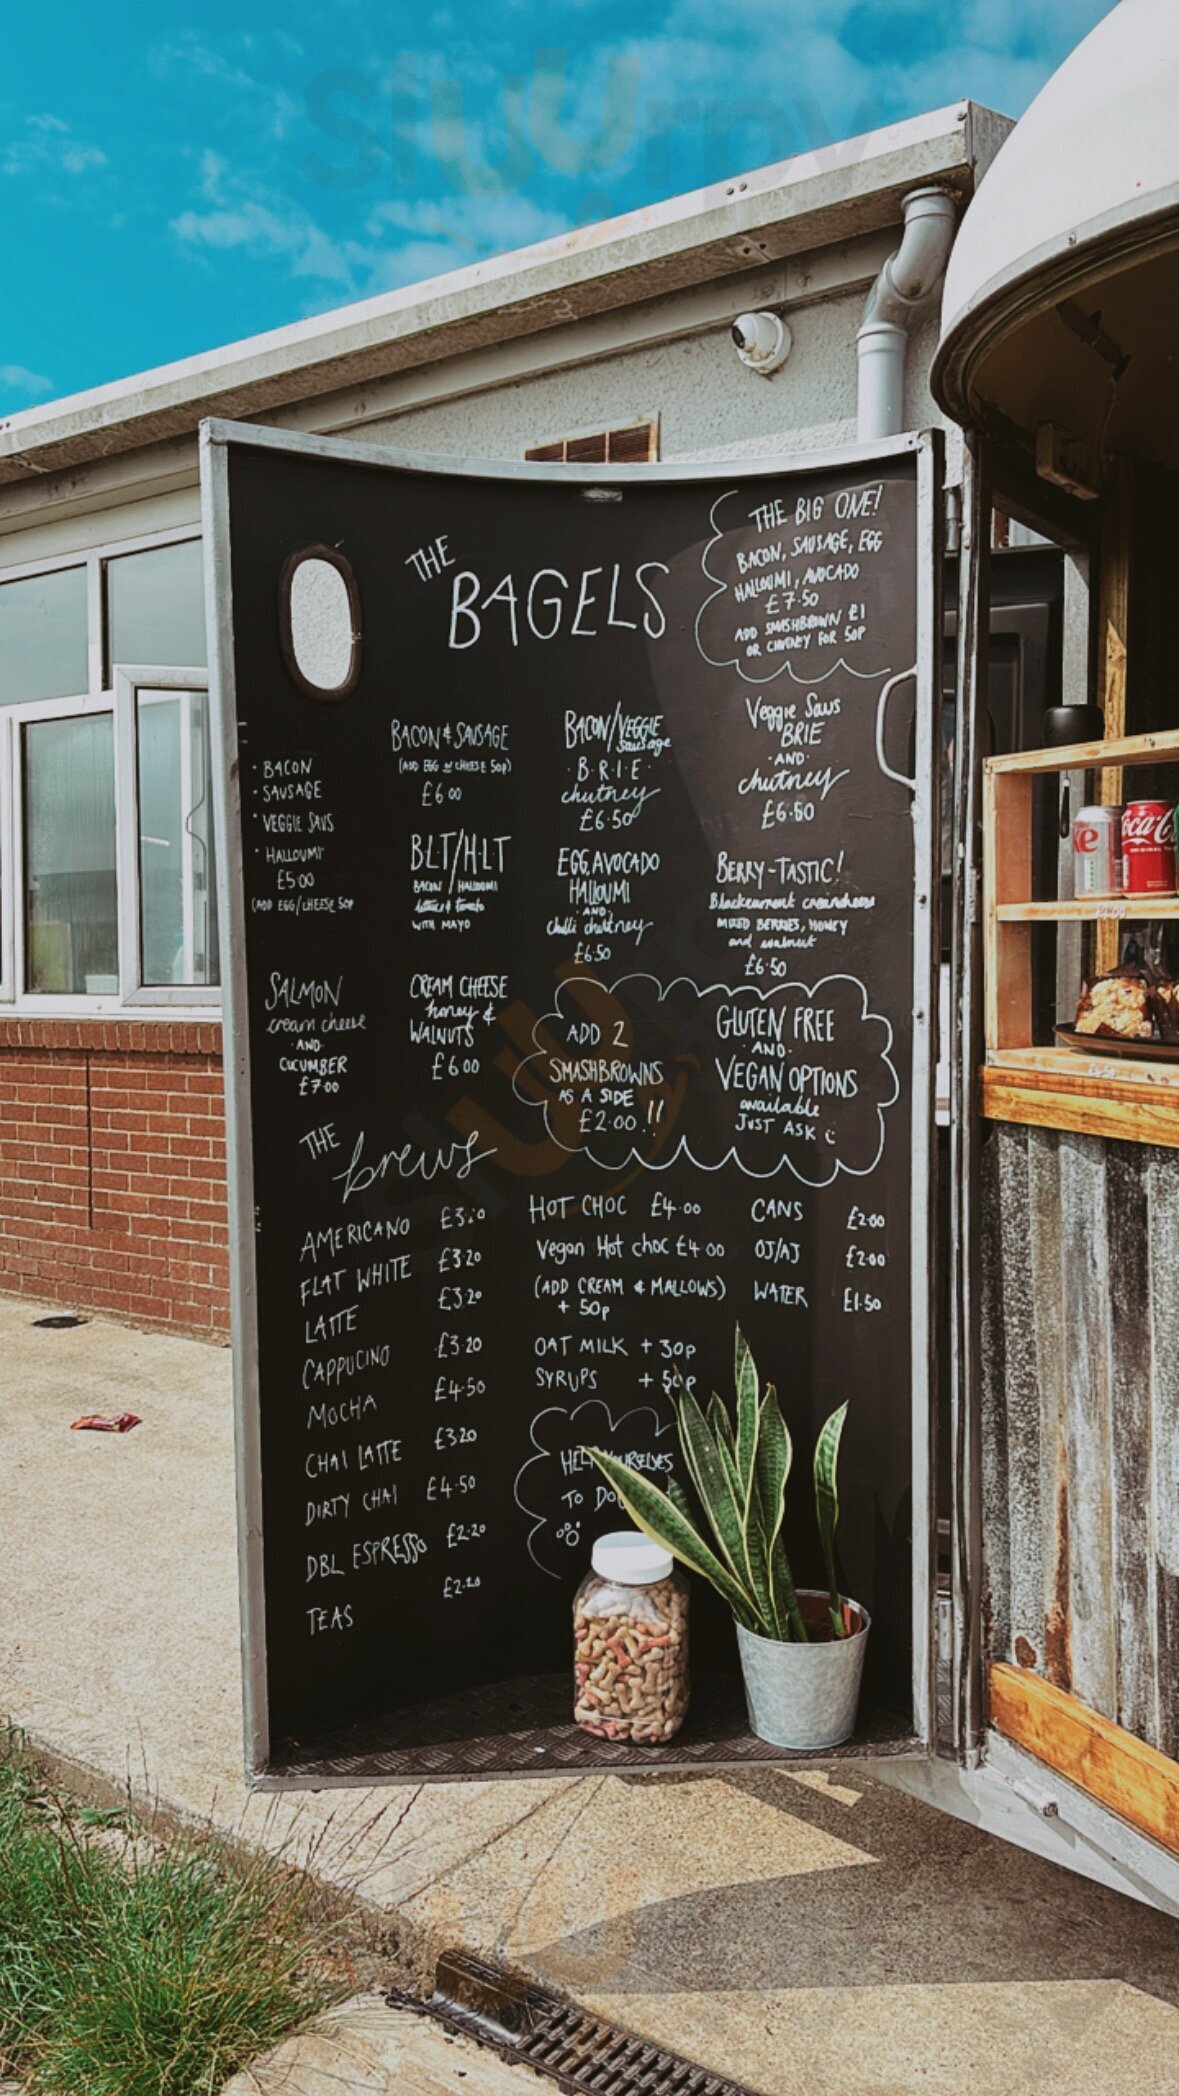 Sluurpy
THE BIG ONE!
BACON, SAUSAGE, EGG
HALLOUMI, AVOCADO
£7.50
ADD SMASHBROWN £1
OR CHUTNEY FOR 50P
THE
BAGELS
· BACON
· SAUSAGE
· VEGGIE SAUS
· HALLOUMI
£5.00
(ADD EGG/CHEESE 50P
BACON & SAUSAGE
(ADD EGG or CHEESE 50p)
£6.00
BLT/HLT
BACON/HALLOUMI
lettuce & tomato
WITH MAYO
BACON/VEGGIE
Sausage
·B·R·I·E·
chutney
£6.50
EGG, AVOCADO
HALLOUMI
AND
chilli chutney
£6.50
Veggie Saus
BRIE
·AND·
chutney
£6.50
BERRY-TASTIC!
Blackcurrant creamcheese
MIXED BERRIES, HONEY
and walnut
£6.50
SALMON
cream cheese
·AND·
CUCUMBER
£7.00
CREAM CHEESE
honey &
WALNUTS
£6.00
ADD 2
SMASHBROWNS
AS A SIDE
£2.00 !!
GLUTEN FREE
·AND·
VEGAN OPTIONS
available
JUST ASK
THE
brews
AMERICANO £3.20
FLAT WHITE £3.20
LATTE £3.20
CAPPUCINO £3.20
MOCHA £4.50
CHAI LATTE £3.20
DIRTY CHAI £4.50
DBL ESPRESSO £2.20
TEAS £2.20
HOT CHOC £4.00
Vegan Hot choc £4.00
(ADD CREAM & MALLOWS)
+ 50p
OAT MILK + 30p
SYRUPS + 50p
CANS £2.00
OJ/AJ £2.00
WATER £1.50
HELP YOURSELVES
TO
Coca-C
ORIGINAL TA
sluurpy